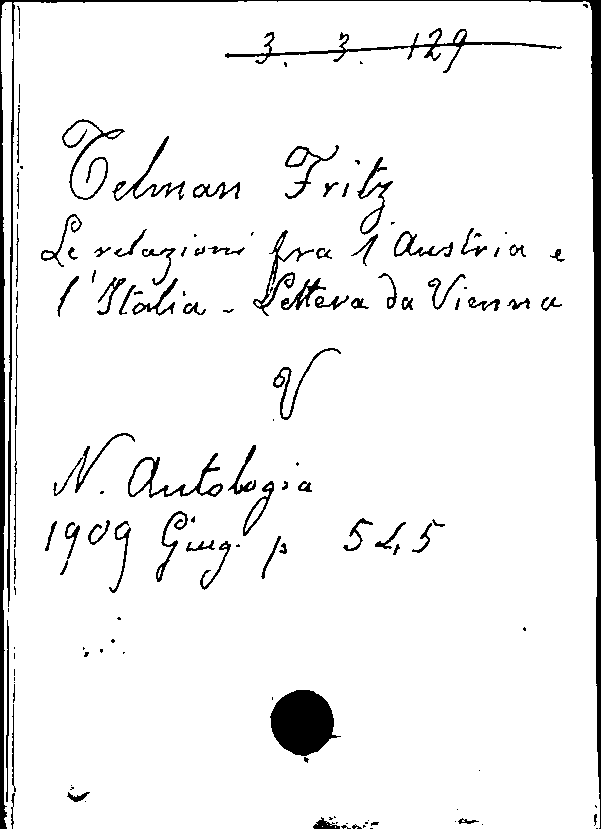 3. 3. 129
Telman Fritz
Le relazioni fra l'Austria e
l'Italia - Lettera da Vienna
V
N. Antologia
1909 Giug. p 545